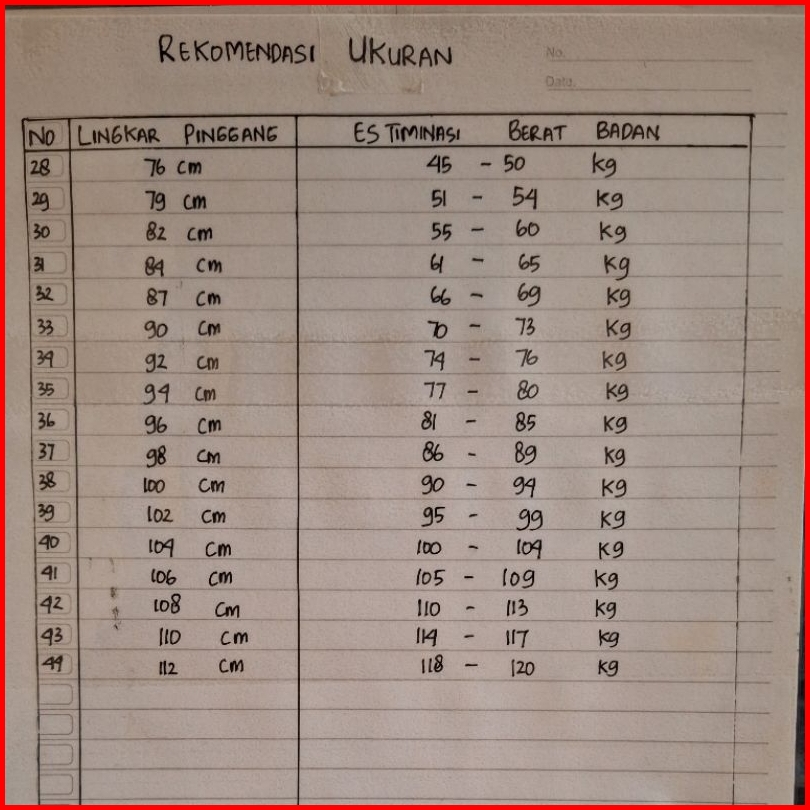 REKOMENDASI UKURAN
No.
Date.
NO LINGKAR PINGGANG ESTIMINASI BERAT BADAN
28 76 cm 45 - 50 kg
29 79 cm 51 - 54 kg
30 82 cm 55 - 60 kg
31 84 cm 61 - 65 kg
32 87 cm 66 - 69 kg
33 90 cm 70 - 73 kg
34 92 cm 74 - 76 kg
35 94 cm 77 - 80 kg
36 96 cm 81 - 85 kg
37 98 cm 86 - 89 kg
38 100 cm 90 - 94 kg
39 102 cm 95 - 99 kg
40 104 cm 100 - 104 kg
41 106 cm 105 - 109 kg
42 108 cm 110 - 113 kg
43 110 cm 114 - 117 kg
44 112 cm 118 - 120 kg